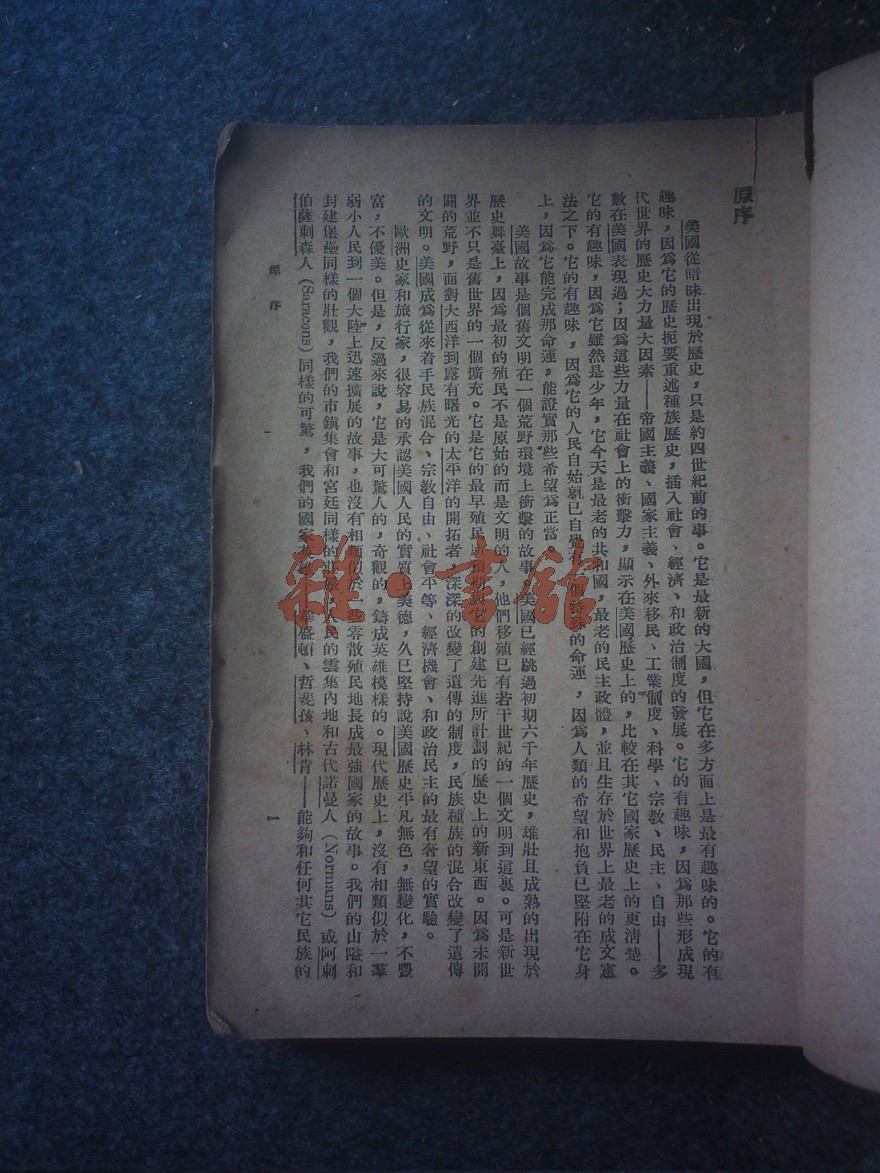 原序
美國從暗昧出現於歷史，只是約四世紀前的事。它是最新的大國，但它在多方面上是最有趣味的。它的有
趣味，因爲它的歷史扼要重述種族歷史，插入社會、經濟、和政治制度的發展。它的有趣味，因爲那些形成現
代世界的歷史大力量大因素——帝國主義、國家主義、外來移民、工業制度、科學、宗教、民主、自由——多
數在美國表現過；因爲這些力量在社會上的衝擊力，顯示在美國歷史上的，比較在其它國家歷史上的更清楚。
它的有趣味，因爲它雖然是少年，它今天是最老的共和國，最老的民主政體，並且生存於世界上最老的成文憲
法之下。它的有趣味，因爲它的人民自始就已自覺 的命運，因爲人類的希望和抱負已堅附在它身
上，因爲它能完成那命運，能證實那些希望爲正當
美國故事是個舊文明在一個荒野環境上衝擊的故事 美國已經跳過初期六千年歷史，雄壯且成熟的出現於
歷史舞臺上，因爲最初的殖民不是原始的而是文明的人，他們移殖已有若干世紀的一個文明到這裏。可是新世
界並不只是舊世界的一個擴充。它是它的最早殖民 的創建先進所計劃的歷史上的新東西。因爲未開
闢的荒野，面對大西洋到露有曙光的太平洋的開拓者 深深的改變了遺傳的制度，民族種族的混合改變了遺傳
的文明。美國成爲從來着手民族混合、宗教自由、社會平等、經濟機會、和政治民主的最有奢望的實驗。
歐洲史家和旅行家，很容易的承認美國人民的實質上美德，久已堅持說美國歷史平凡無色，無變化，不豐
富，不優美。但是，反過來說，它是大可驚人的，奇觀的，鑄成英雄模樣的。現代歷史上，沒有相類似於一羣
弱小人民到一個大陸上迅速擴展的故事，也沒有相類似於一些零散殖民地長成最強國家的故事。我們的山隘和
封建堡壘同樣的壯觀，我們的市鎮集會和宮廷同樣的 人民的雲集內地和古代諾曼人（Normans）或阿剌
伯薩剌森人（Saracens）同樣的可驚，我們的國家 華盛頓、哲斐孫、林肯——能夠和任何其它民族的
原 序
一
雜·書館